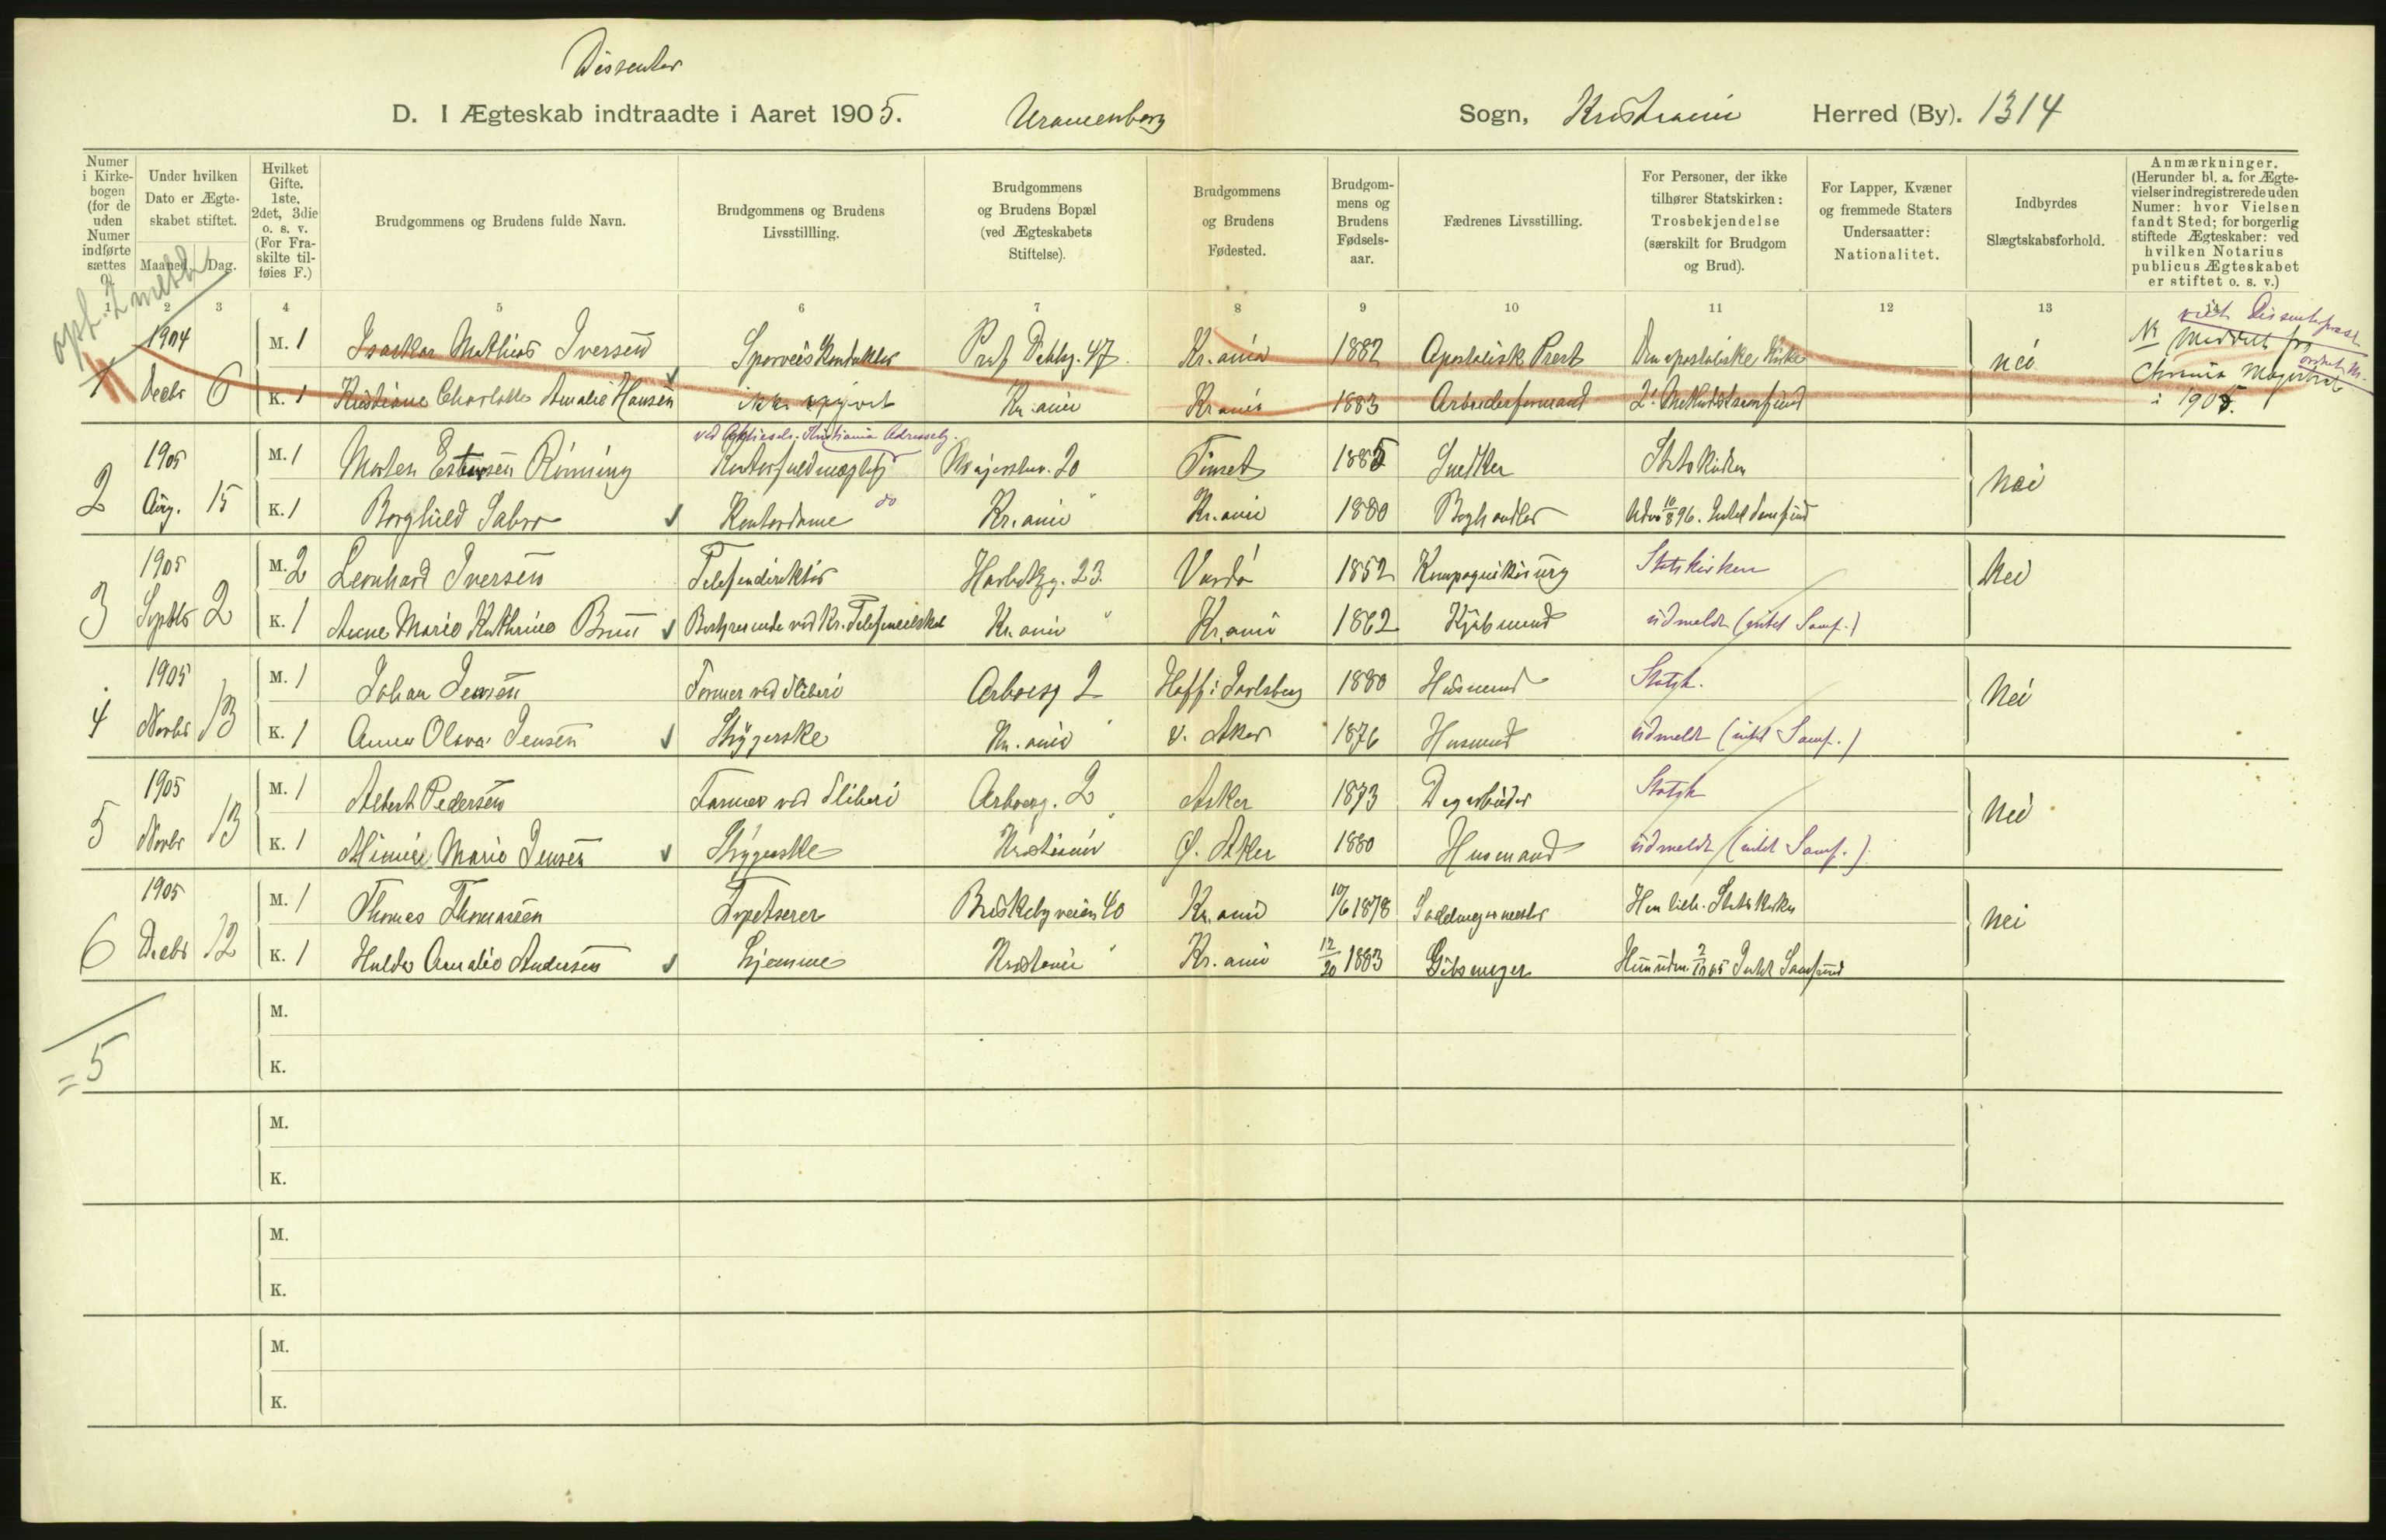 Dissenter
D. I Ægteskab indtraadte i Aaret 1905. Uranienborg Sogn, Kristiania Herred (By). 1314
Numer i Kirke-bogen (for de uden Numer indførte sættes 0).
Under hvilken Dato er Ægte-skabet stiftet.
Maaned. Dag.
Hvilket Gifte. 1ste, 2det, 3die o. s. v. (For Fra-skilte til-føies F.)
Brudgommens og Brudens fulde Navn.
Brudgommens og Brudens Livsstillling.
Brudgommens og Brudens Bopæl (ved Ægteskabets Stiftelse).
Brudgommens og Brudens Fødested.
Brudgom-mens og Brudens Fødsels-aar.
Fædrenes Livsstilling.
For Personer, der ikke tilhører Statskirken: Trosbekjendelse (særskilt for Brudgom og Brud).
For Lapper, Kvæner og fremmede Staters Undersaatter: Nationalitet.
Indbyrdes Slægtskabsforhold.
Anmærkninger. (Herunder bl. a. for Ægte-vielser indregistrerede uden Numer: hvor Vielsen fandt Sted; for borgerlig stiftede Ægteskaber: ved hvilken Notarius publicus Ægteskabet er stiftet o. s. v.)
1 2 3 4 5 6 7 8 9 10 11 12 13
1 1904 Decbr 6 M. 1 Mathias Iversen Sporveis Konduktør Prof Dahlsg. 47. Kr.ania 1882 Apostolisk Prest Den apostoliske Kirke nei
K. 1 Kristiane Charlotte Amalie Hansen ikke opgivet Kr.ania Kr.ania 1883 Arbeiderformand
i 1905.
ved Kristiania Adressebg.
2 1905 Aug. 15 M. 1 Morten Estensen Rønning Kontorfuldmægtig 20 Tønset 1885 Snedker Statskirken Nei
K. 1 Borghild Kontordame do Kr.ania " Kr.ania 1880 Boghandler 10/8 96. Intet Samfund
3 1905 Septbr 2 M. 2 Leonhard Iversen Telefondirektør 23. Vardø 1852 Statskirken Nei
K. 1 Anne Marie Kathrine Bruun Bestyrerinde ved Kr. Kr.ania " Kr.ania 1862 Kjøbmand udmeldt (intet Samf.)
4 1905 Novbr 13 M. 1 Johan Jensen Former ved Støberi Arboesg 2 Hoff i Jarlsberg 1880 Husmand Statsk. Nei
K. 1 Anna Olava Jensen Strygerske Kr.ania " V. Aker 1876 Husmand udmeldt (intet Samf.)
5 1905 Novbr 13 M. 1 Albert Pedersen Former ved Støberi Arboesg. 2 Asker 1873 Dagarbeider Statsk Nei
K. 1 Minnie Marie Jensen Strygerske Kristiania " Ø. Aker 1880 Husmand udmeldt (intet Samf.)
6 1905 Decbr 12 M. 1 Thomas Thomassen Tapetserer Briskebyveien 40 Kr.ania 10/6 1878 Sadelmagermester Han tilh. Statskirken nei
K. 1 Hulda Amalie Andersen Hjemme Kristiania " Kr.ania 12/20 1883 Gibsmager Hun udm. 2/12 05 Intet Samfund
M.
K.
= 5
M.
K.
M.
K.
M.
K.